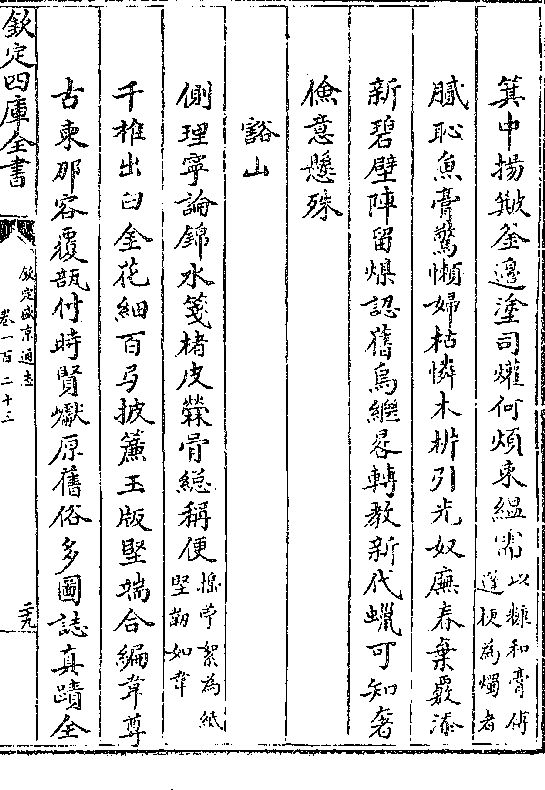 箕中揚皴釜邊塗司爟何煩束緼需以糠和膏傅
蓬梗為燭者
膩恥魚膏驚懶婦枯憐木枡引光奴廉春棄覈添
新碧壁陣留熳認舊烏纏畧轉教新代蠟可知奢
儉意懸殊
豁山
側理寧論錦水箋楮皮蘂骨緫稱便搗苧絮為紙
堅韌如韋
千椎出臼金花細百号披簾玉版堅端合編韋尊
古柬那容覆瓿付時賢巘原舊俗多圖誌真蹟全
欽定四庫全書
欽定盛京通志
卷一百二十三
三九